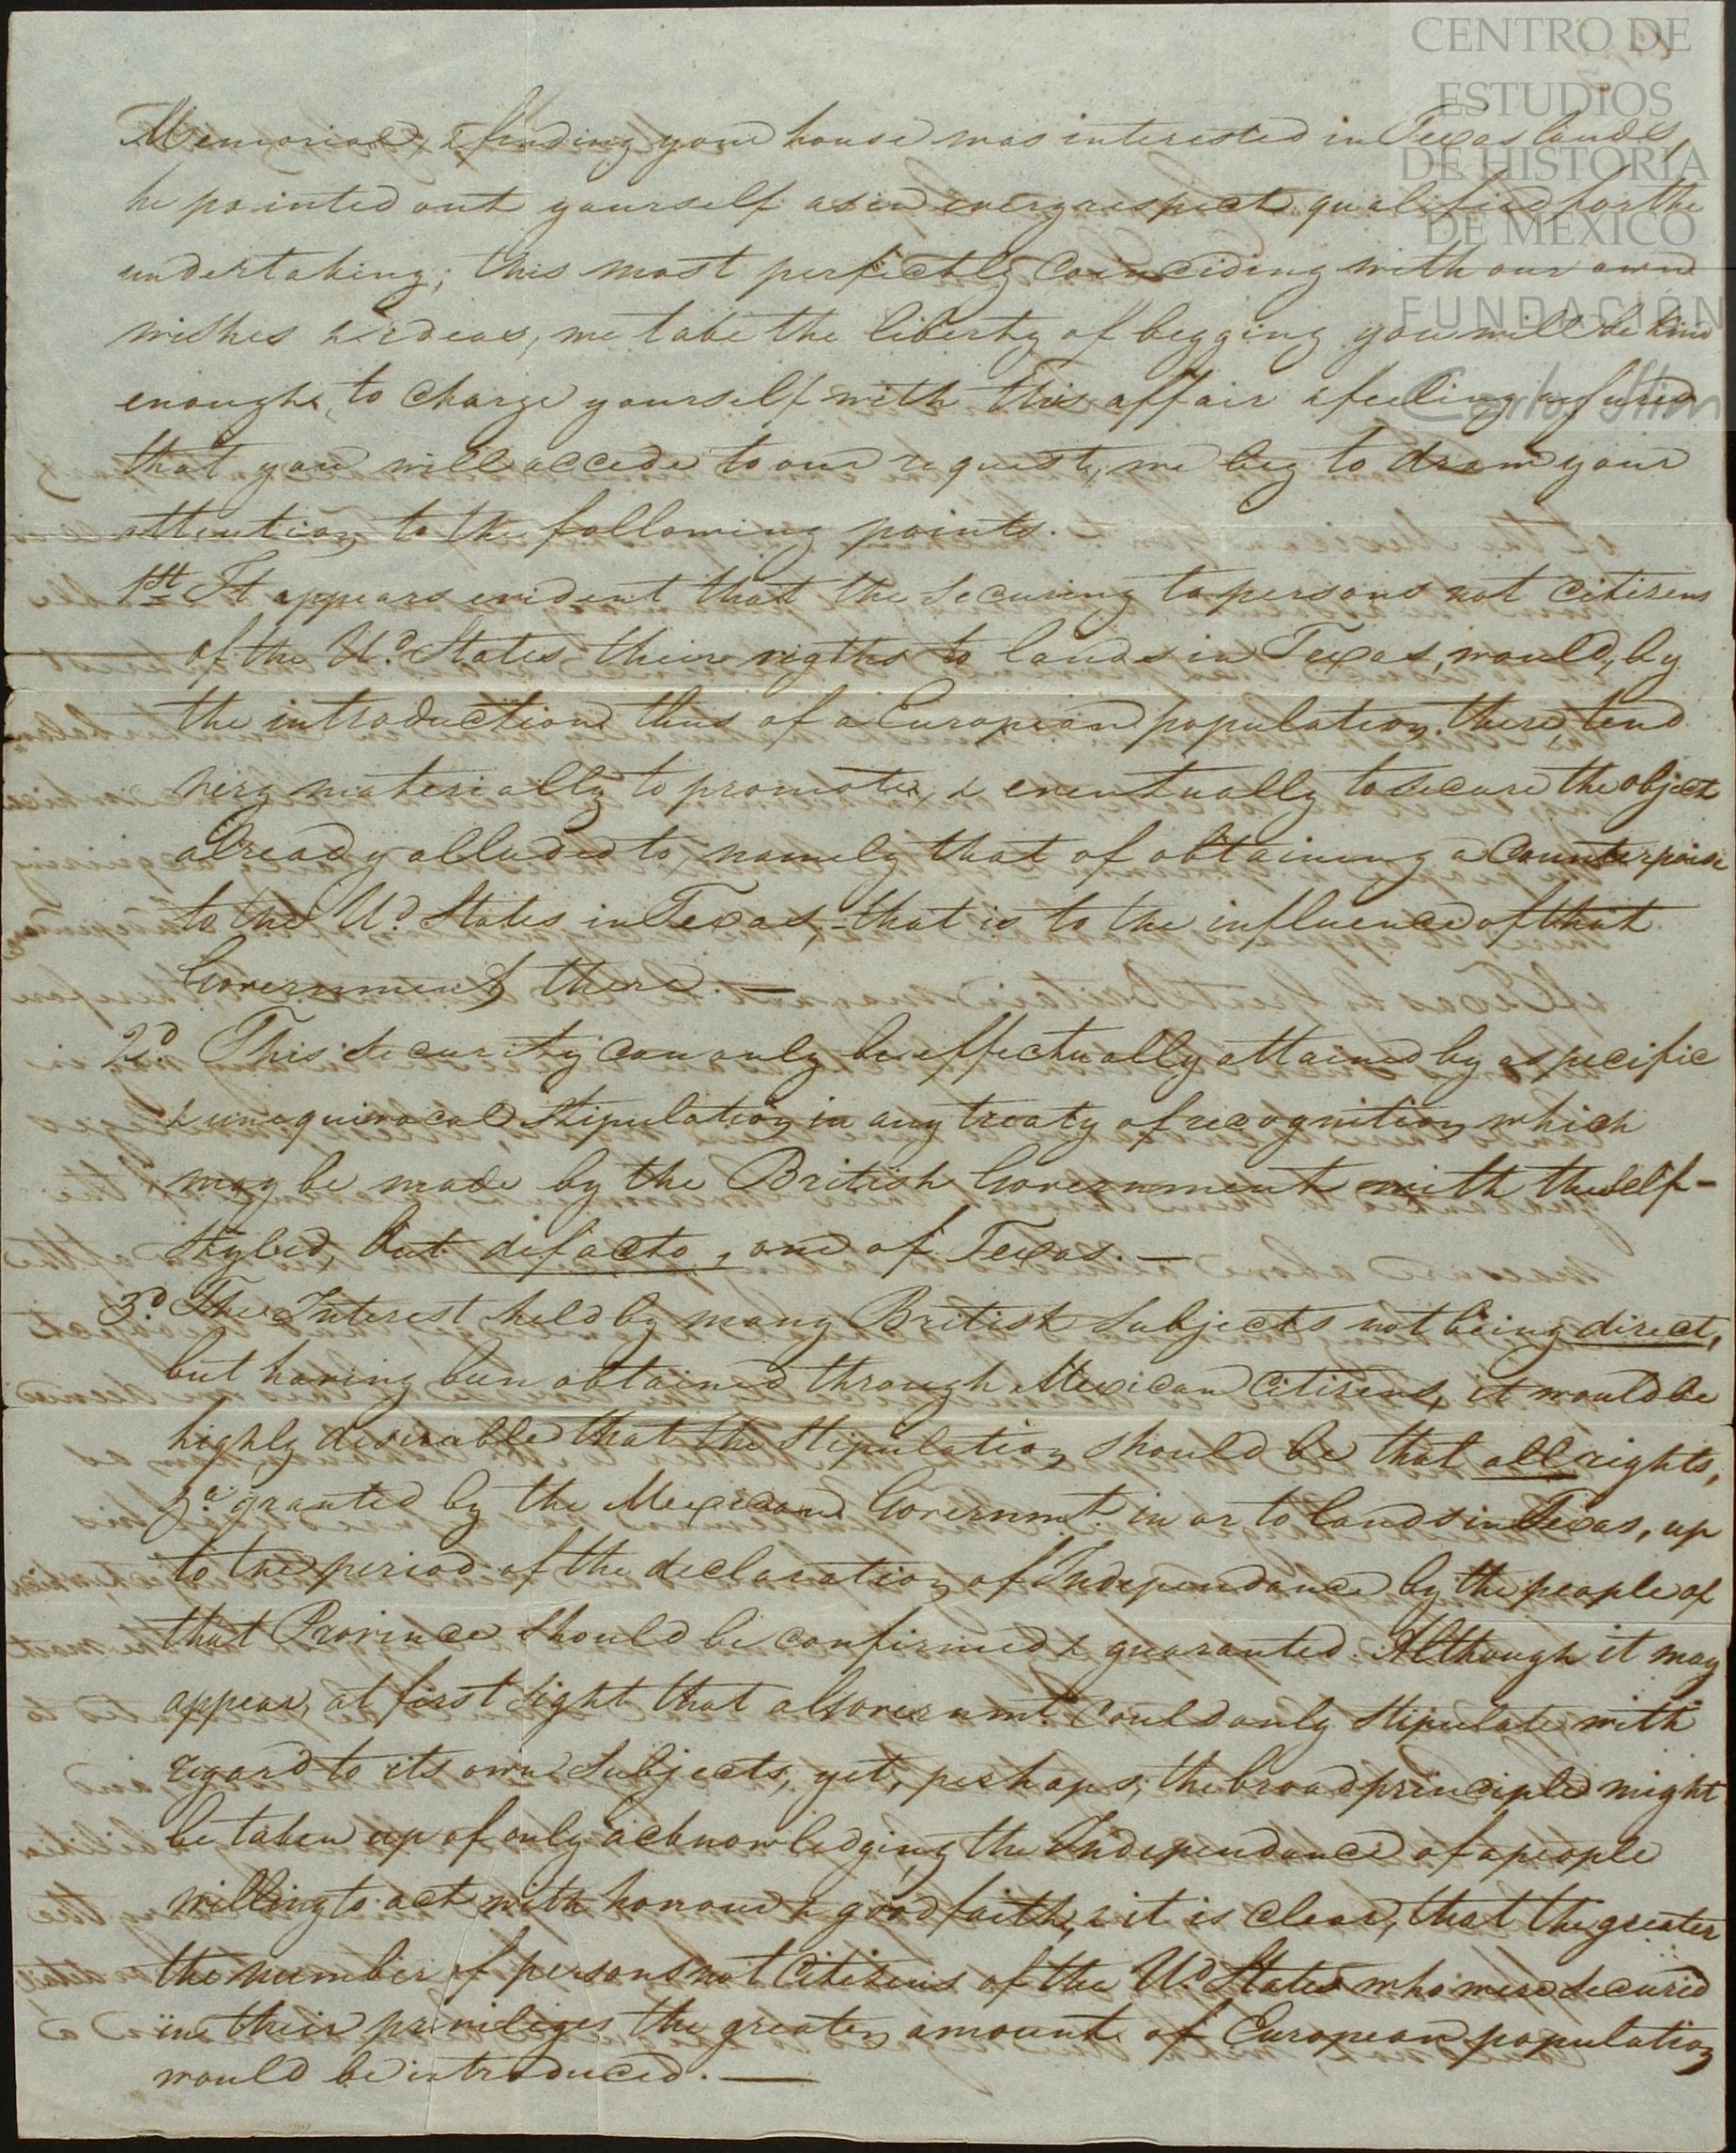 CENTRO DE
ESTUDIOS
DE HISTORIA
DE MEXICO
FUNDACIÓN
Carlos Slim
Memorial, & finding your house was interested in Texas lands,
he pointed out yourself as in every respect qualified for the
undertaking; this most perfectly coinciding with our own
wishes & ideas, we take the liberty of begging you will be kind
enough, to charge yourself with this affair & feeling assured
that you will accede to our request, we beg to draw your
attention to the following points.
1st It appears evident that the securing to persons not Citizens
of the Ud. States their rigths to lands in Texas, would, by
the introduction thus of a European population there, tend
very materially to promote, & eventually to secure the object
already alluded to, namely that of obtaining a Counterpoise
to the Ud. States in Texas, - that is to the influence of that
Government there. —
2d. This security can only be effectually attained by a specific
& unequivocal stipulation in any treaty of recognition which
may be made by the British Government with the self-
styled, but defacto, one of Texas. —
3d. The Interest held by many British Subjects not being direct,
but having been obtained through Mexican Citizens, it would be
highly desirable that the stipulation should be that all rights,
granted by the Mexican Governmt. in or to lands in Texas, up
to the period of the declaration of Independance by the people of
that Province should be confirmed & guaranted. Although it may
appear, at first sight that a Governmt. Could only stipulate with
regard to its own Subjects, yet, perhaps, the broad principle might
be taken up of only acknowledging the Independance of a people
willing to act with honour & good faith, & it is clear, that the greater
the number of persons not Citizens of the Ud. States who were secured
in their priviliges the greater amount of European population
would be introduced. —